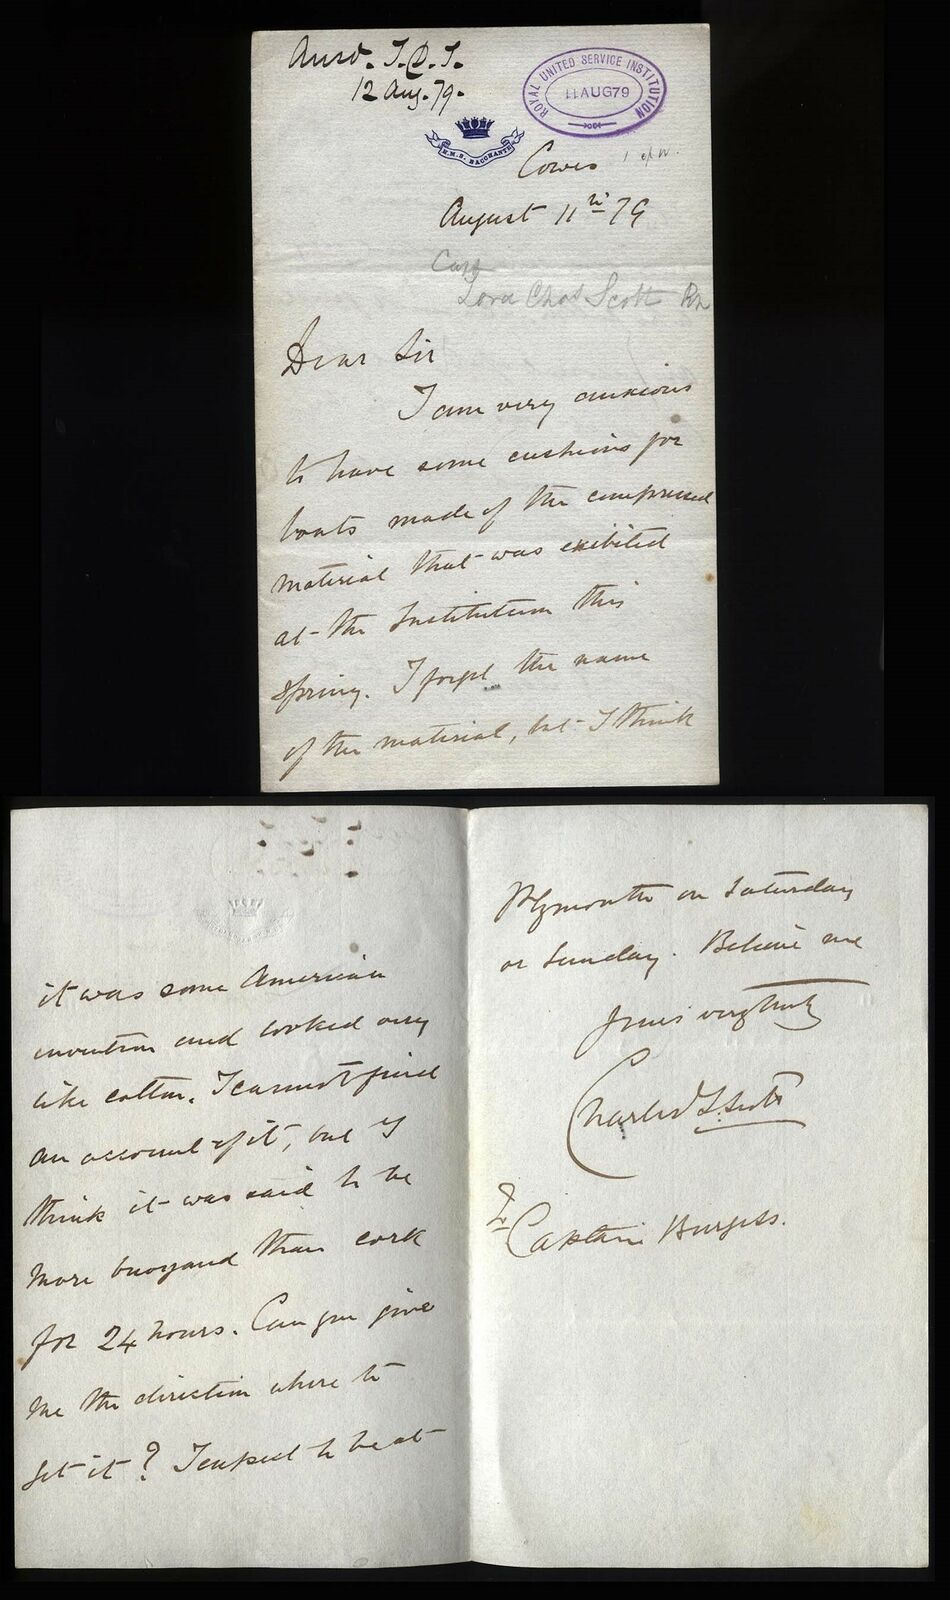 Answd. T.D.T.
12 Aug. 79.
ROYAL UNITED SERVICE INSTITUTION
11 AUG 79
H.M.S. BACCHANTE
Cowes
August 11th 79
Capt
Lord Chas Scott RN
Dear Sir
I am very anxious
to have some cushions for
boats made of the compressed
material that was exibited
at the Institution this
spring. I forget the name
of the material, but I think
it was some American
invention and looked very
like cotton. I cannot find
an account of it, but I
think it was said to be
more buoyand than cork
for 24 hours. Can you give
me the direction where to
get it? I expect to be at
Plymouth on Saturday
or Sunday. Believe me
Yours very truly
Charles T Scott
To
Captain Burgess.